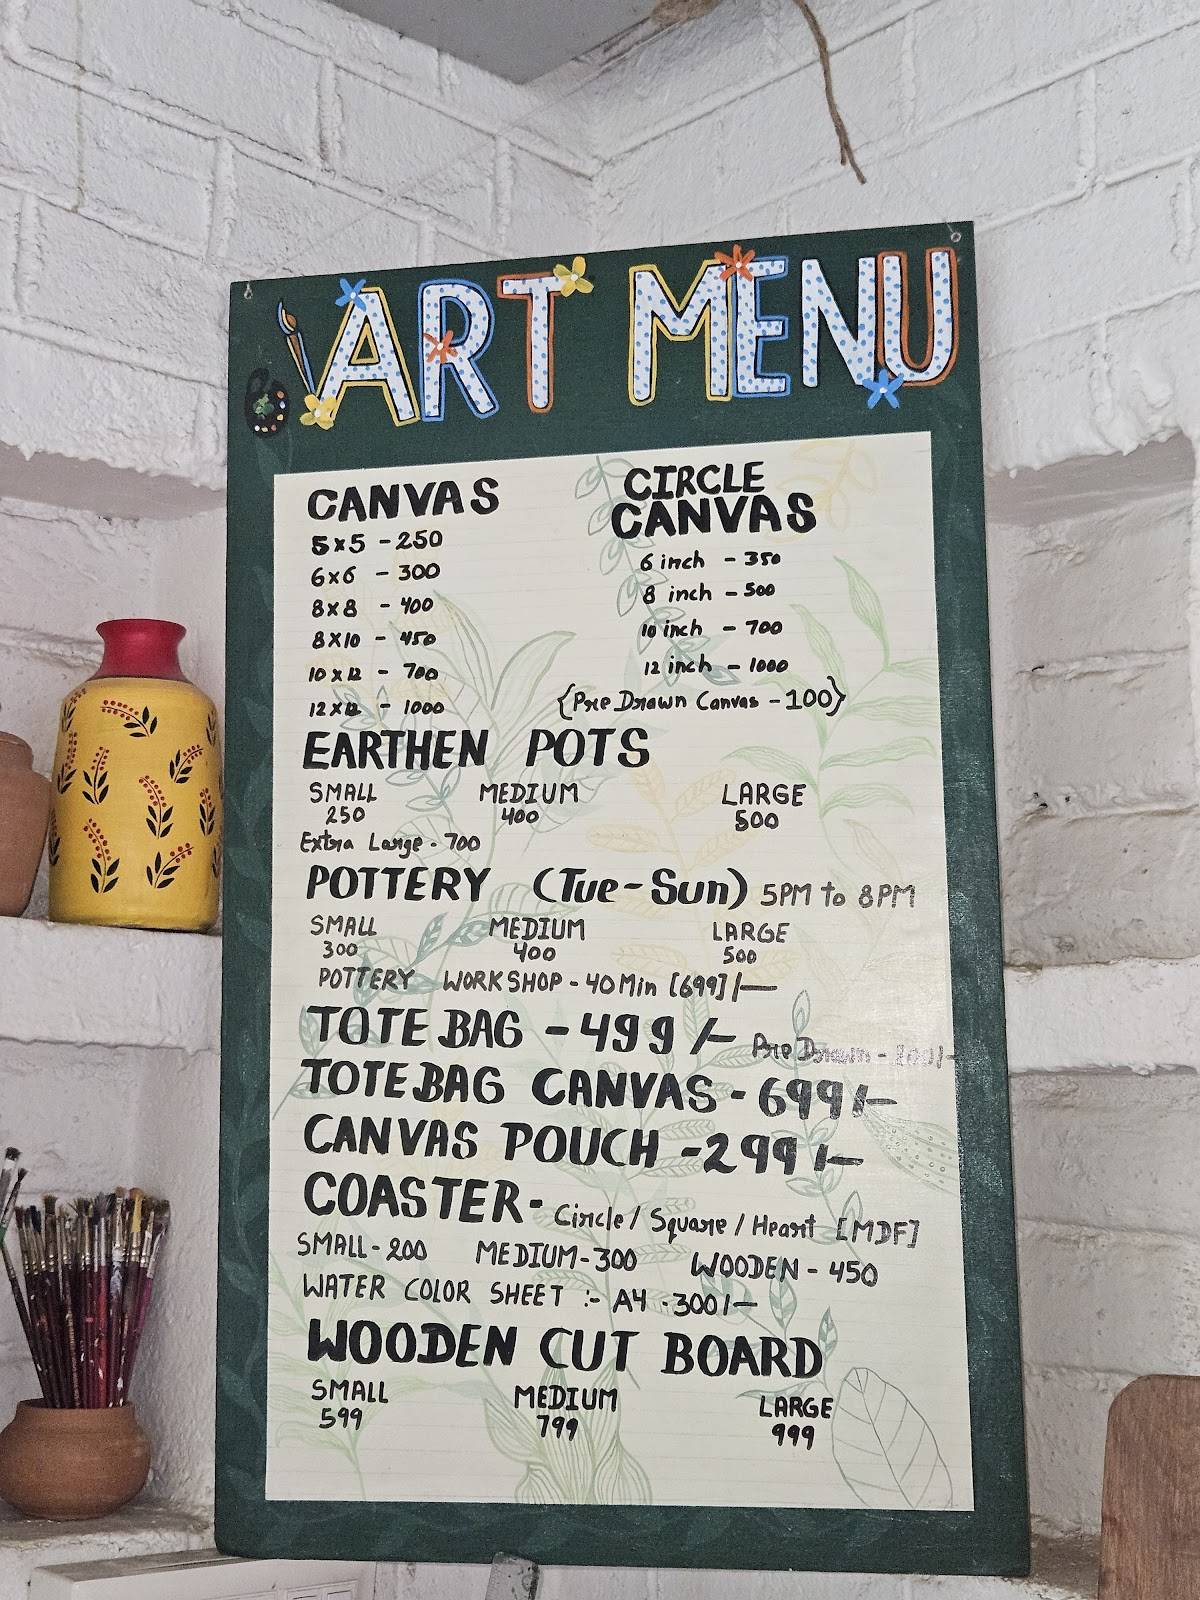 ART MENU
CANVAS
5x5 - 250
6x6 - 300
8x8 - 400
8x10 - 450
10x12 - 700
12x12 - 1000
CIRCLE
CANVAS
6 inch - 350
8 inch - 500
10 inch - 700
12 inch - 1000
{Pre Drawn Canvas - 100}
EARTHEN POTS
SMALL MEDIUM LARGE
250 400 500
Extra Large - 700
POTTERY (Tue-Sun) 5PM to 8PM
SMALL MEDIUM LARGE
300 400 500
POTTERY WORKSHOP - 40 Min [699]/-
TOTE BAG - 499/- Pre Drawn -
TOTE BAG CANVAS - 699/-
CANVAS POUCH - 299/-
COASTER - Circle / Square / Heart [MDF]
SMALL - 200 MEDIUM - 300 WOODEN - 450
WATER COLOR SHEET :- A4 - 300/-
WOODEN CUT BOARD
SMALL MEDIUM LARGE
599 799 999